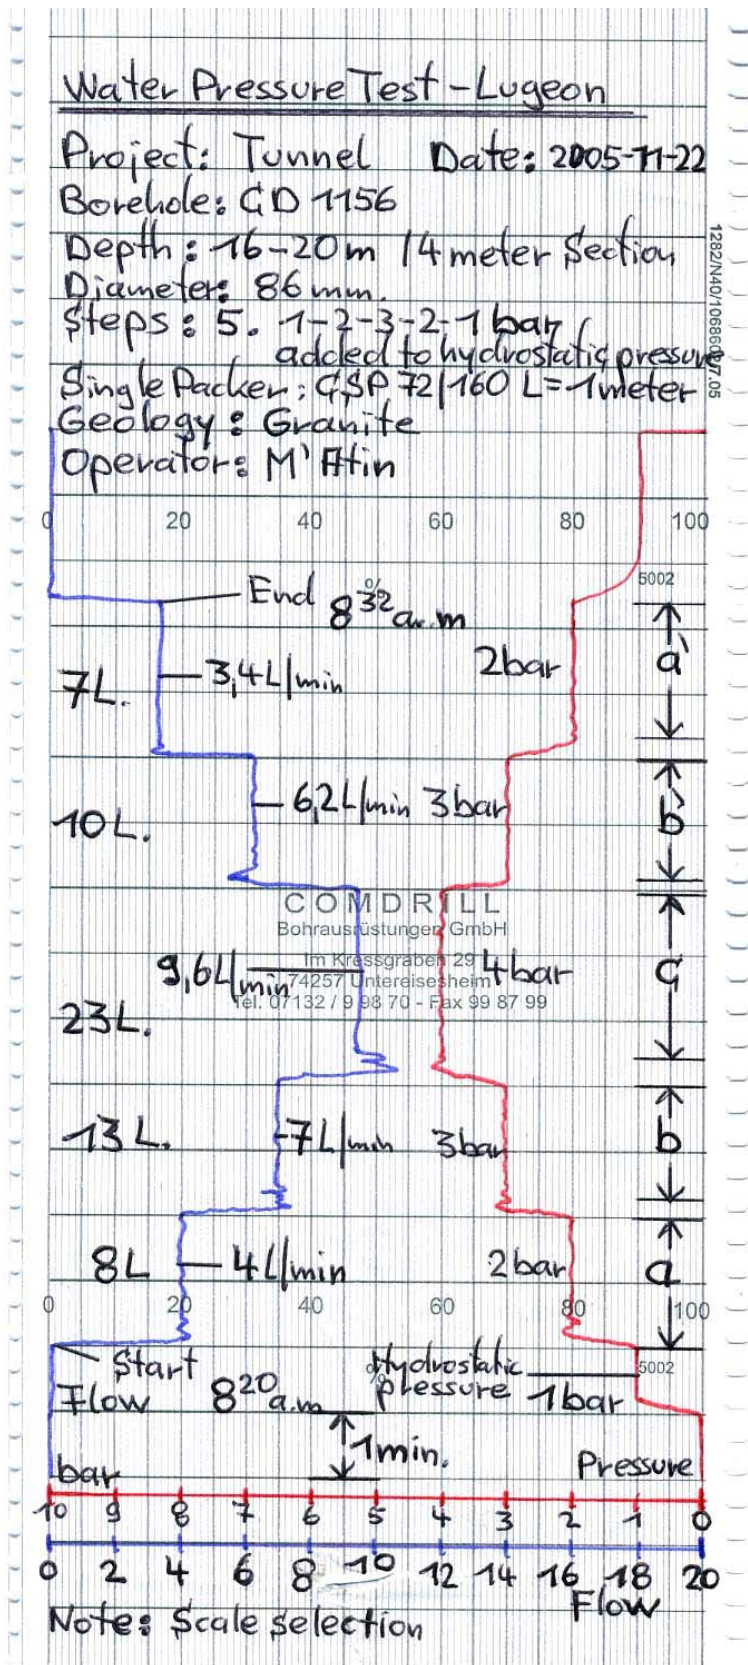 Water Pressure Test - Lugeon
Project: Tunnel Date: 2005-11-22
Borehole: GD 1156
Depth: 16-20m / 4 meter Section
Diameter: 86 mm.
Steps: 5. 1-2-3-2-1 bar
added to hydrostatic pressure
Single Packer: GSP 72/160 L=1meter
Geology: Granite
Operator: M'Atin
0 20 40 60 80 100
5002
End 8 32 a.m
a'
2bar
7L. 3,4L/min
10L. 6,2L/min 3bar b'
COMDRILL
Bohrausrüstungen GmbH
Im Kressgraben 29
74257 Untereisesheim
Tel. 07132 / 9 98 70 - Fax 99 87 99
9,6L/min 4bar c
23L.
13L. 7L/min 3bar b
8L 4L/min 2bar a
0 20 40 60 80 100
5002
Start
Flow 8 20 a.m
Hydrostatic
pressure 1bar
1min.
bar Pressure
10 9 8 7 6 5 4 3 2 1 0
0 2 4 6 8 10 12 14 16 18 20
Flow
Note: Scale selection